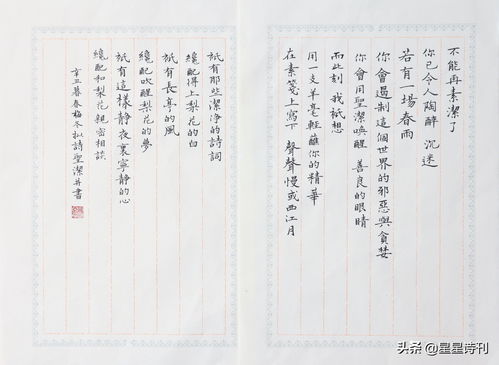 不能再素潔了
你已令人陶醉 沉迷
若有一場春雨
你會遏制這個世界的邪惡與貪婪
你會用聖潔喚醒 善良的眼睛
而此刻 我祇想
用一支羊毫輕蘸你的精華
在素箋上寫下 聲聲慢或西江月
祇有那些潔净的詩詞
纔配得上梨花的白
祇有長亭的風
纔配吹醒梨花的夢
祇有這樣靜夜裏寧靜的心
纔配和梨花親密相談
辛丑暮春梅冬拟詩聖潔并書
头条 @星星诗刊